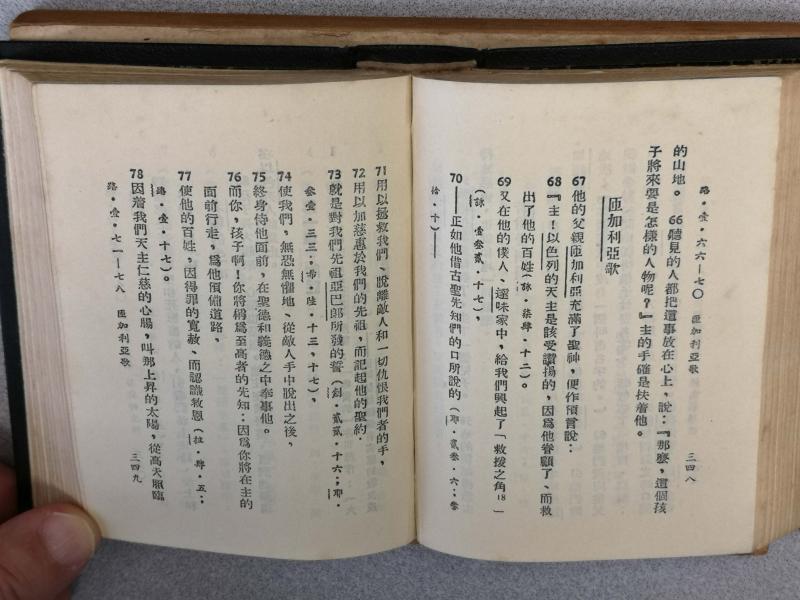 路·壹·六六—七〇　匝加利亞歌　三四八
的山地。66聽見的人都把這事放在心上，說：『那麼，這個孩
子將來要是怎樣的人物呢？』主的手確是扶着他。
匝加利亞歌
67他的父親匝加利亞充滿了聖神，便作預言說：
68『主！以色列的天主是該受讚揚的，因爲他眷顧了、而救
出了他的百姓（詠·柒肆·十二）。
69又在他的僕人、達味家中，給我們興起了「救援之角18」
（詠·壹叁貳·十七），
70——正如他借古聖先知們的口所說的（耶·貳叁·六；叁
拾·十）——
71用以拯救我們、脫離敵人和一切仇恨我們者的手，
72用以加慈惠於我們的先祖，而記起他的聖約·
73就是對我們先祖亞巴郎所發的誓（創·貳貳·十六；耶·
叁壹·三三；希·陸·十三，十七），
74使我們，無恐無懼地、從敵人手中脫出之後，
75終身侍他面前，在聖德和義德之中奉事他。
76而你，孩子啊！你將稱爲至高者的先知：因爲你將在主的
面前行走，爲他預備道路，
77使他的百姓，因得罪的寬赦、而認識救恩（拉·肆·五；
路·壹·十七）。
78因着我們天主仁慈的心腸，叫那上昇的太陽，從高天照臨
路·壹·七一—七八　匝加利亞歌　三四九